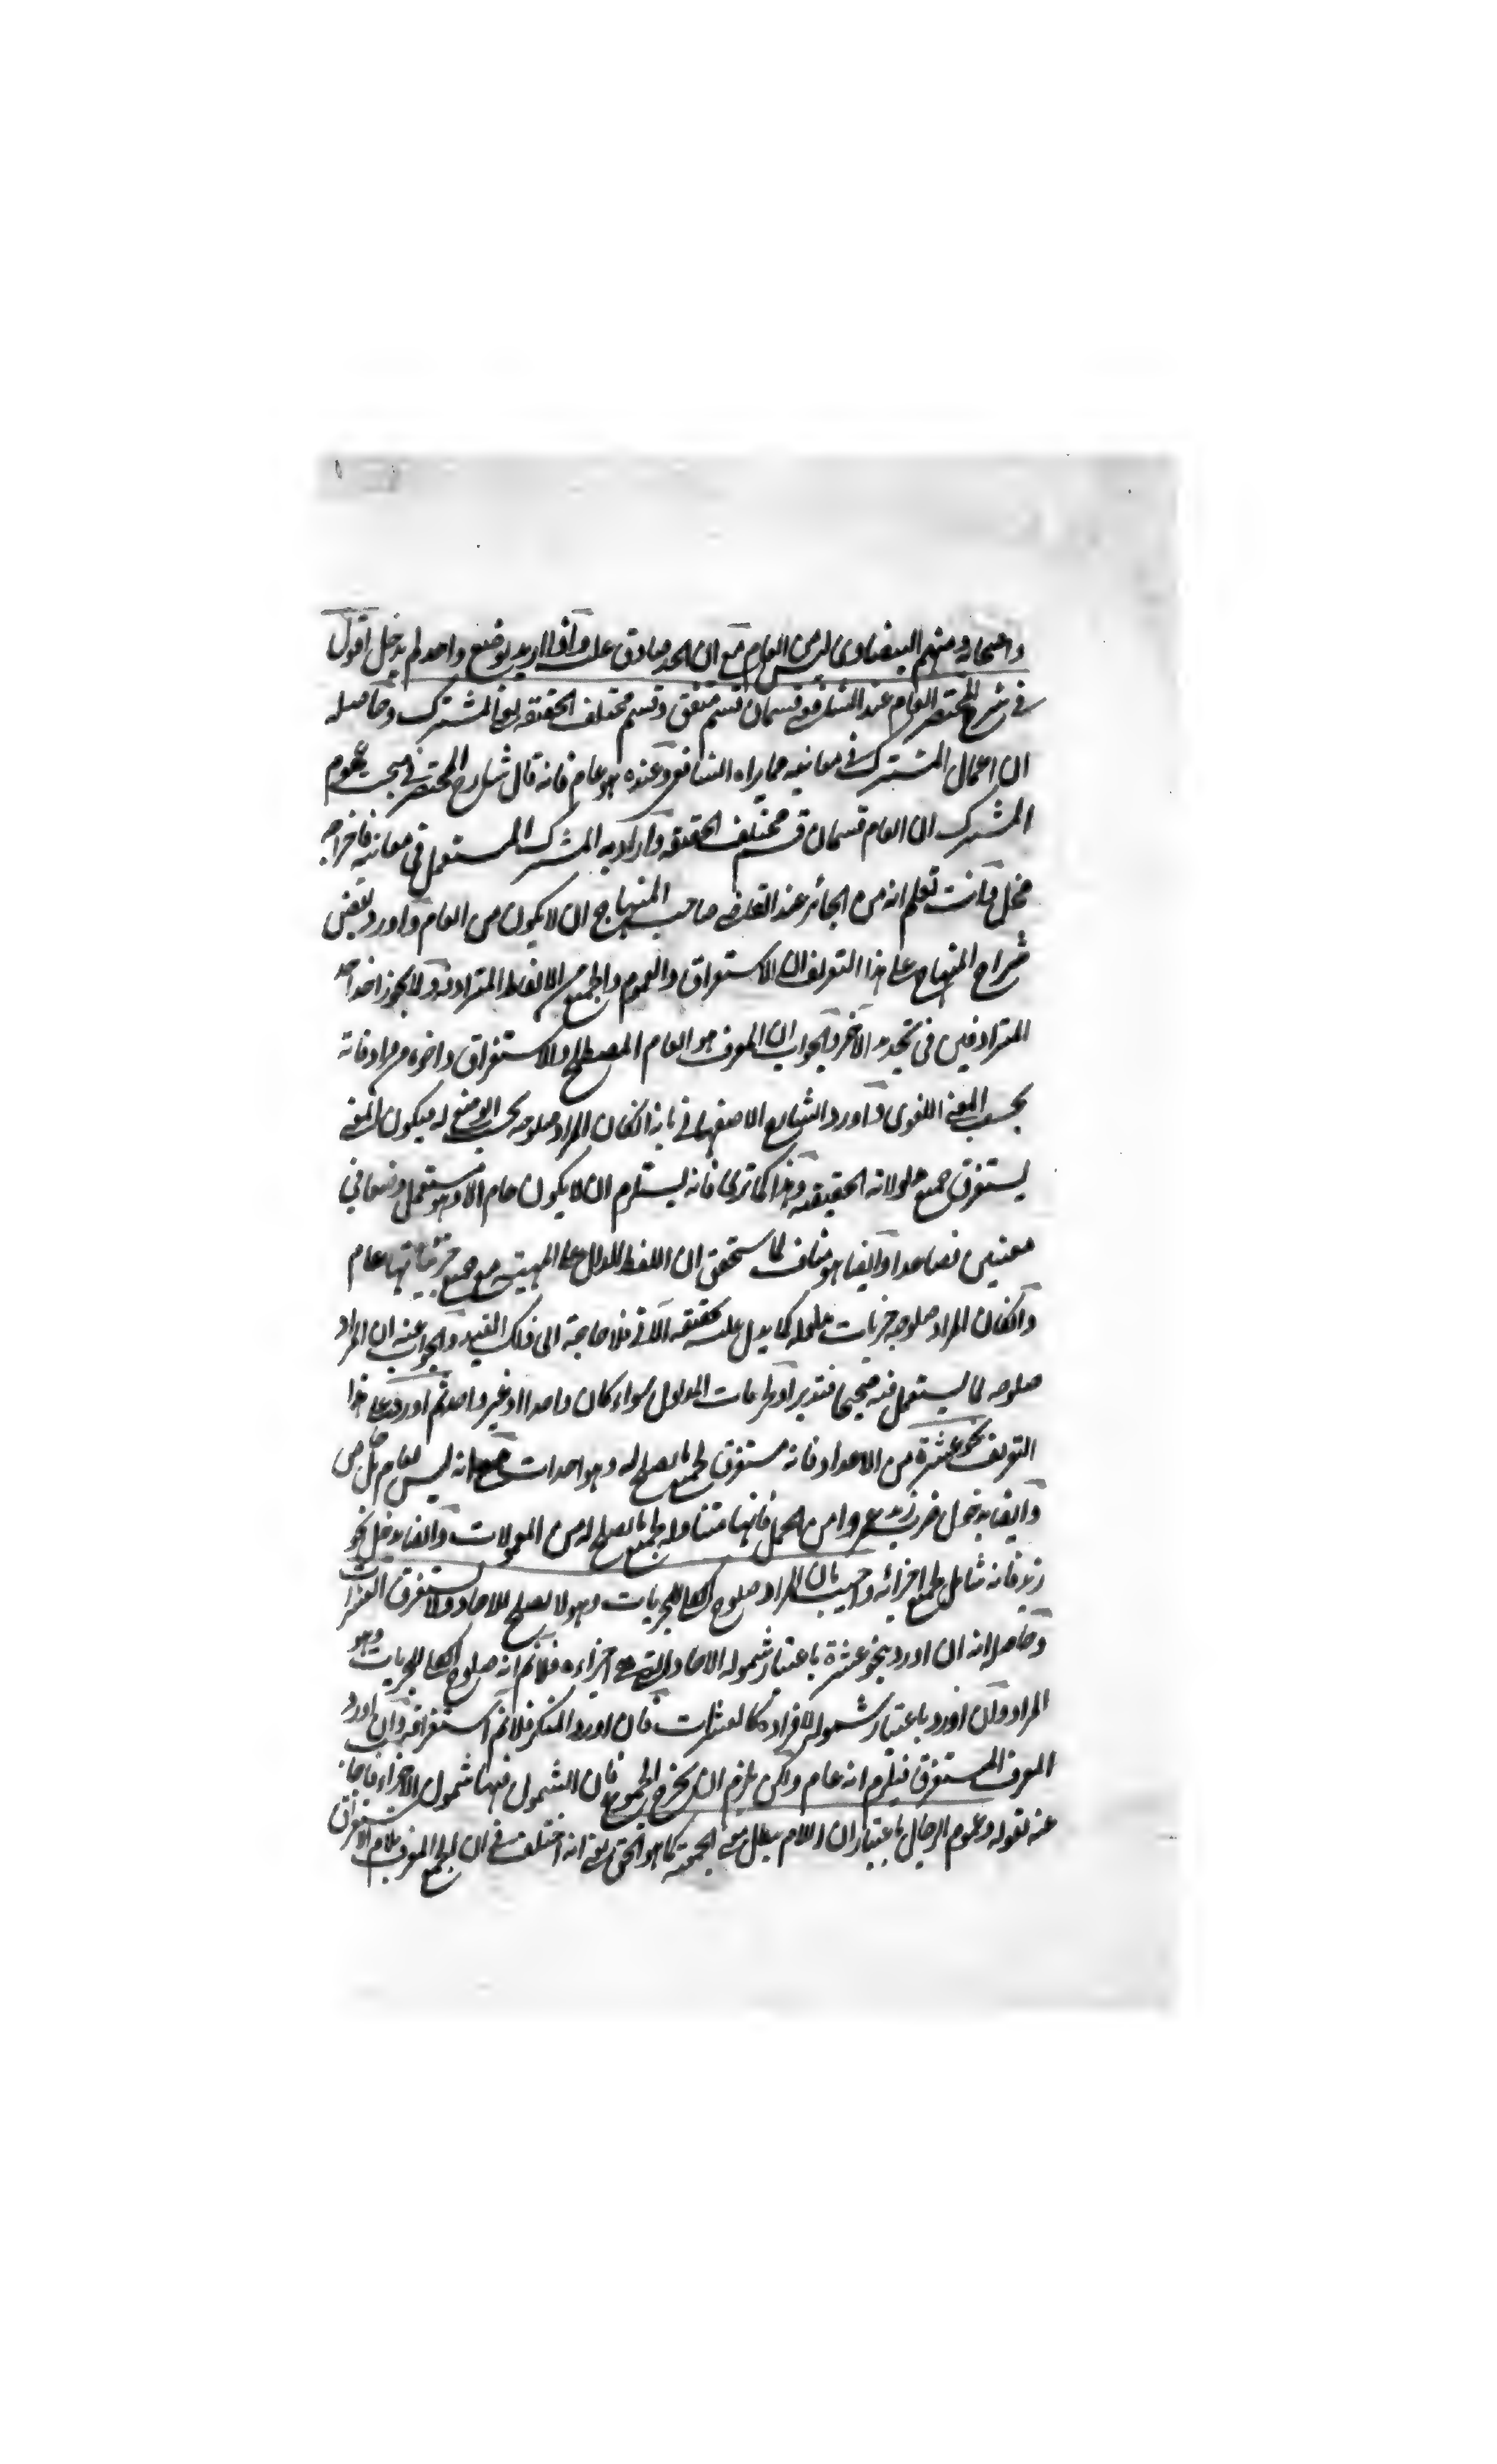 واصحابه ومنهم البيضاوى ليس من العام مع ان الحد صادق عليه واذا اريد بوضع واحد لم يدخل اقول
فى شرح المختصر العام عند الشافعى قسمان قسم متفق وقسم مختلف الحقيقة يعنى المشترك وحاصله
ان اعمال المشترك فى معانيه مما يراه الشافعى وعنده هو عام فانه قال شارح المختصر فى مبحث عموم
المشترك ان العام قسمان قسم مختلف الحقيقة واراد به المشترك المستعمل فى معانيه فاخراجه
مخل وانت تعلم انه من الجائز عند القاضى صاحب المنهاج ان لا يكون من العام واورد بعض
شراح المنهاج على هذا التعريف ان الاستغراق والعموم والجميع من الالفاظ المترادفة ولا يجوز اخذ احد
المترادفين فى تحديد الآخر والجواب ان المعرف هو العام المصطلح والاستغراق واخوه مرادفاته
بحسب المعنى اللغوى واورد الشارح الاصفهانى بانه ان كان المراد صلوحه بحسب الوضع له فيكون المعنى
يستغرق جميع مدلولاته الحقيقية وهذا كما ترى فانه يستلزم ان لا يكون عام الا وهو مستعمل وضعا فى
معنيين فصاعدا وايضا هو مناف لما ستحقق ان اللفظ الدال على المهية مع جميع جزئياتها عام
وان كان المراد صلوحه جزئيات مدلوله كما يدل عليه تحقيقه الآتى فلا حاجة الى ذلك القيد والجواب عنه ان المراد
صلوحه لما يستعمل فيه صحيحا فتدبر او لجزئيات المدلول سواء كان واحدا او غير واحد ثم اورد على هذا
التعريف نحو عشرة من الاعداد فانه مستغرق لجميع ما يصلح له وهو احدات مع انه ليس بعام بل خاص
وايضا يدخل ضرب زيد عمروا من الجمل فانها متناولة لجميع ما يصلح له من المعمولات وايضا يدخل نحو
زيد فانه شامل لجميع اجزائه واجيب بان المراد صلوح الكلى للجزئيات وهو لا يصلح للاحاد ولا يستغرق العشرات
وحاصله انه ان اورد بنحو عشرة باعتبار شموله الاحاد التى هى اجزاءه فلا نم انه صلوح الكلى للجزئيات وهو
المراد وان اورد باعتبار شموله لافراده كالعشرات فان اورد المنكر فلا نم استغراقه وان اورد
المعرف المستغرق فيلتزم انه عام ولكن يلزم ان يخرج الجموع فان الشمول فيها شمول الاجزاء فاجاب
عنه بقوله وعموم الرجال باعتبار ان اللام يبطل معنى الجمعية كما هو الحق يعنى انه اختلف فى ان الجمع المعرف بلام الاستغراق